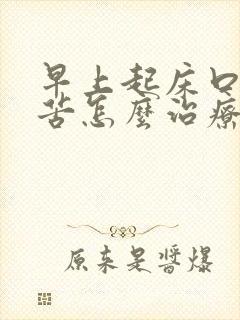 早上起床口
苦怎麼治療
原来是醬爆